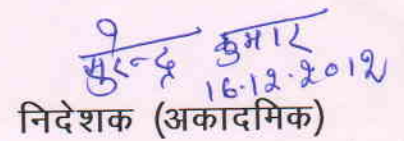 सुरेन्द्र कुमार
16.12.2012
निदेशक (अकादमिक)